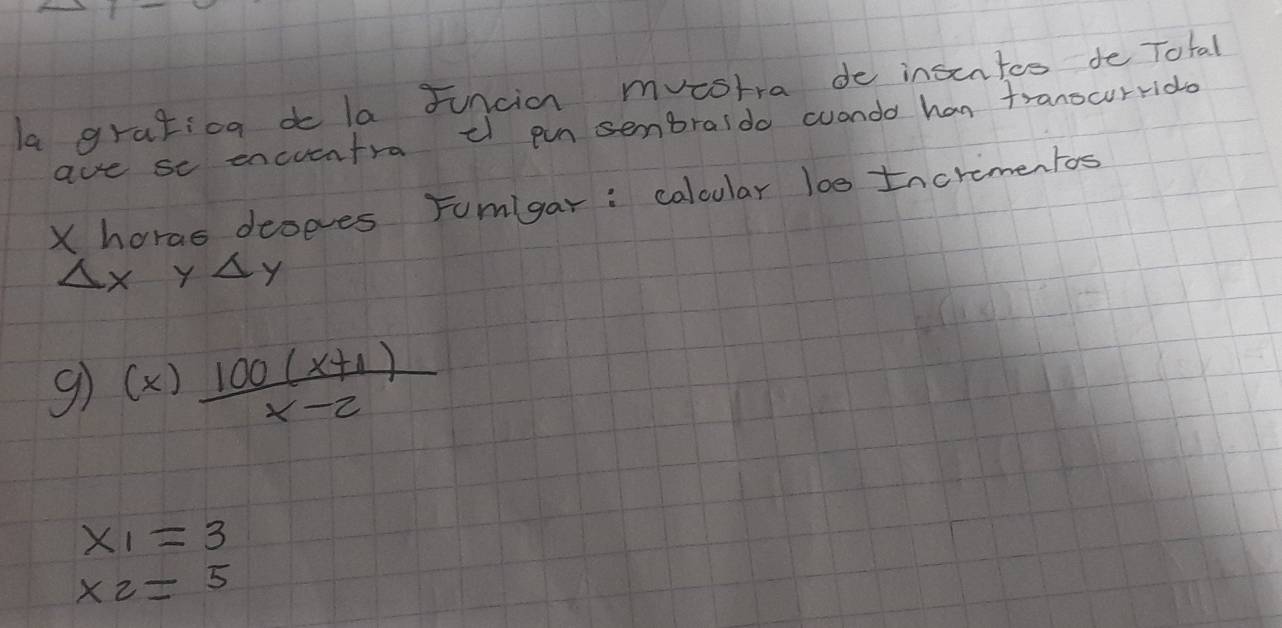 la grafica de la Funcion muestra de insentos de Total
que se encuentra el en sembraldo cuando han transcurrido
X horas despues Fumigar : calcular los Incrementos
Δx y Δy
g) (x) 100(x+1) / x-2
x1 = 3
x2 = 5